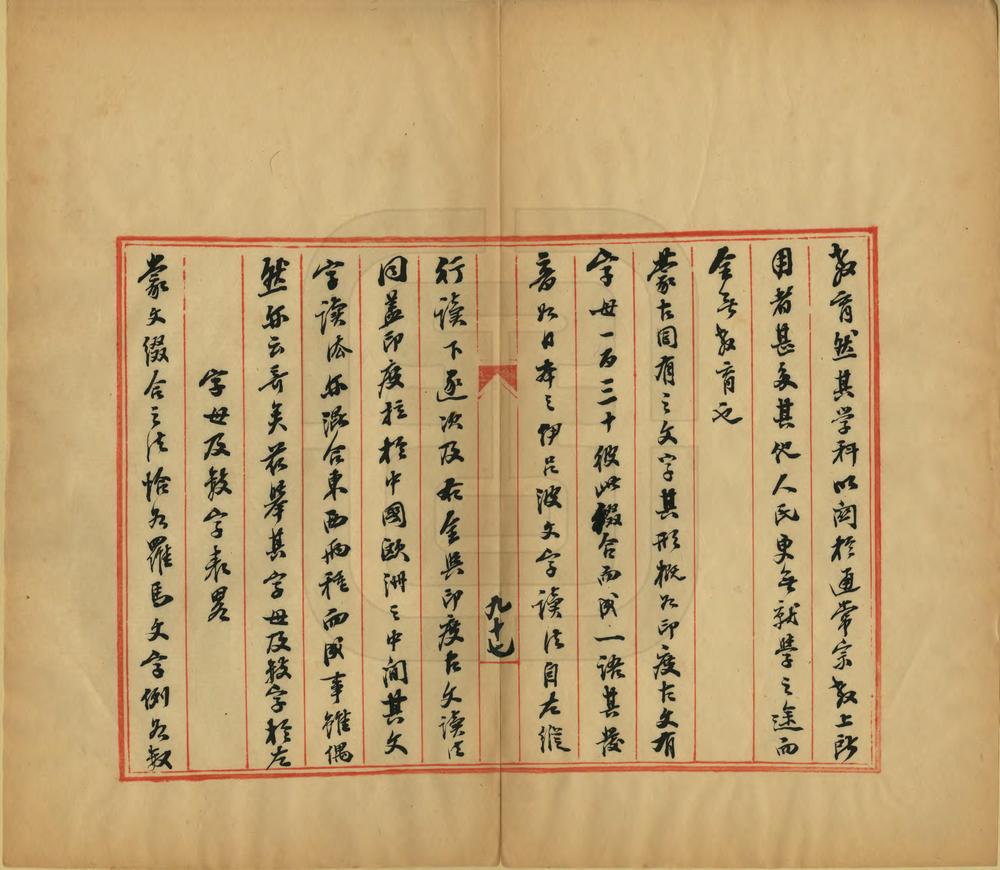 教育然其学科以関於通常宗教上所
用者甚多其他人民更無就學之途而
全無教育也
蒙古固有之文字其形概如印度古文有
字母一百三十彼此綴合而成一語其發
音如日本之伊呂波文字讀法自左縱
九十七
行讀下逐次及右全與印度古文讀法
同蓋印度位於中國歐洲之中间其文
字讀法亦混合東西兩種而成事雖偶
然亦云奇矣茲舉其字母及数字於左
字母及数字表畧
蒙文缀合之法恰如羅馬文字例如叙